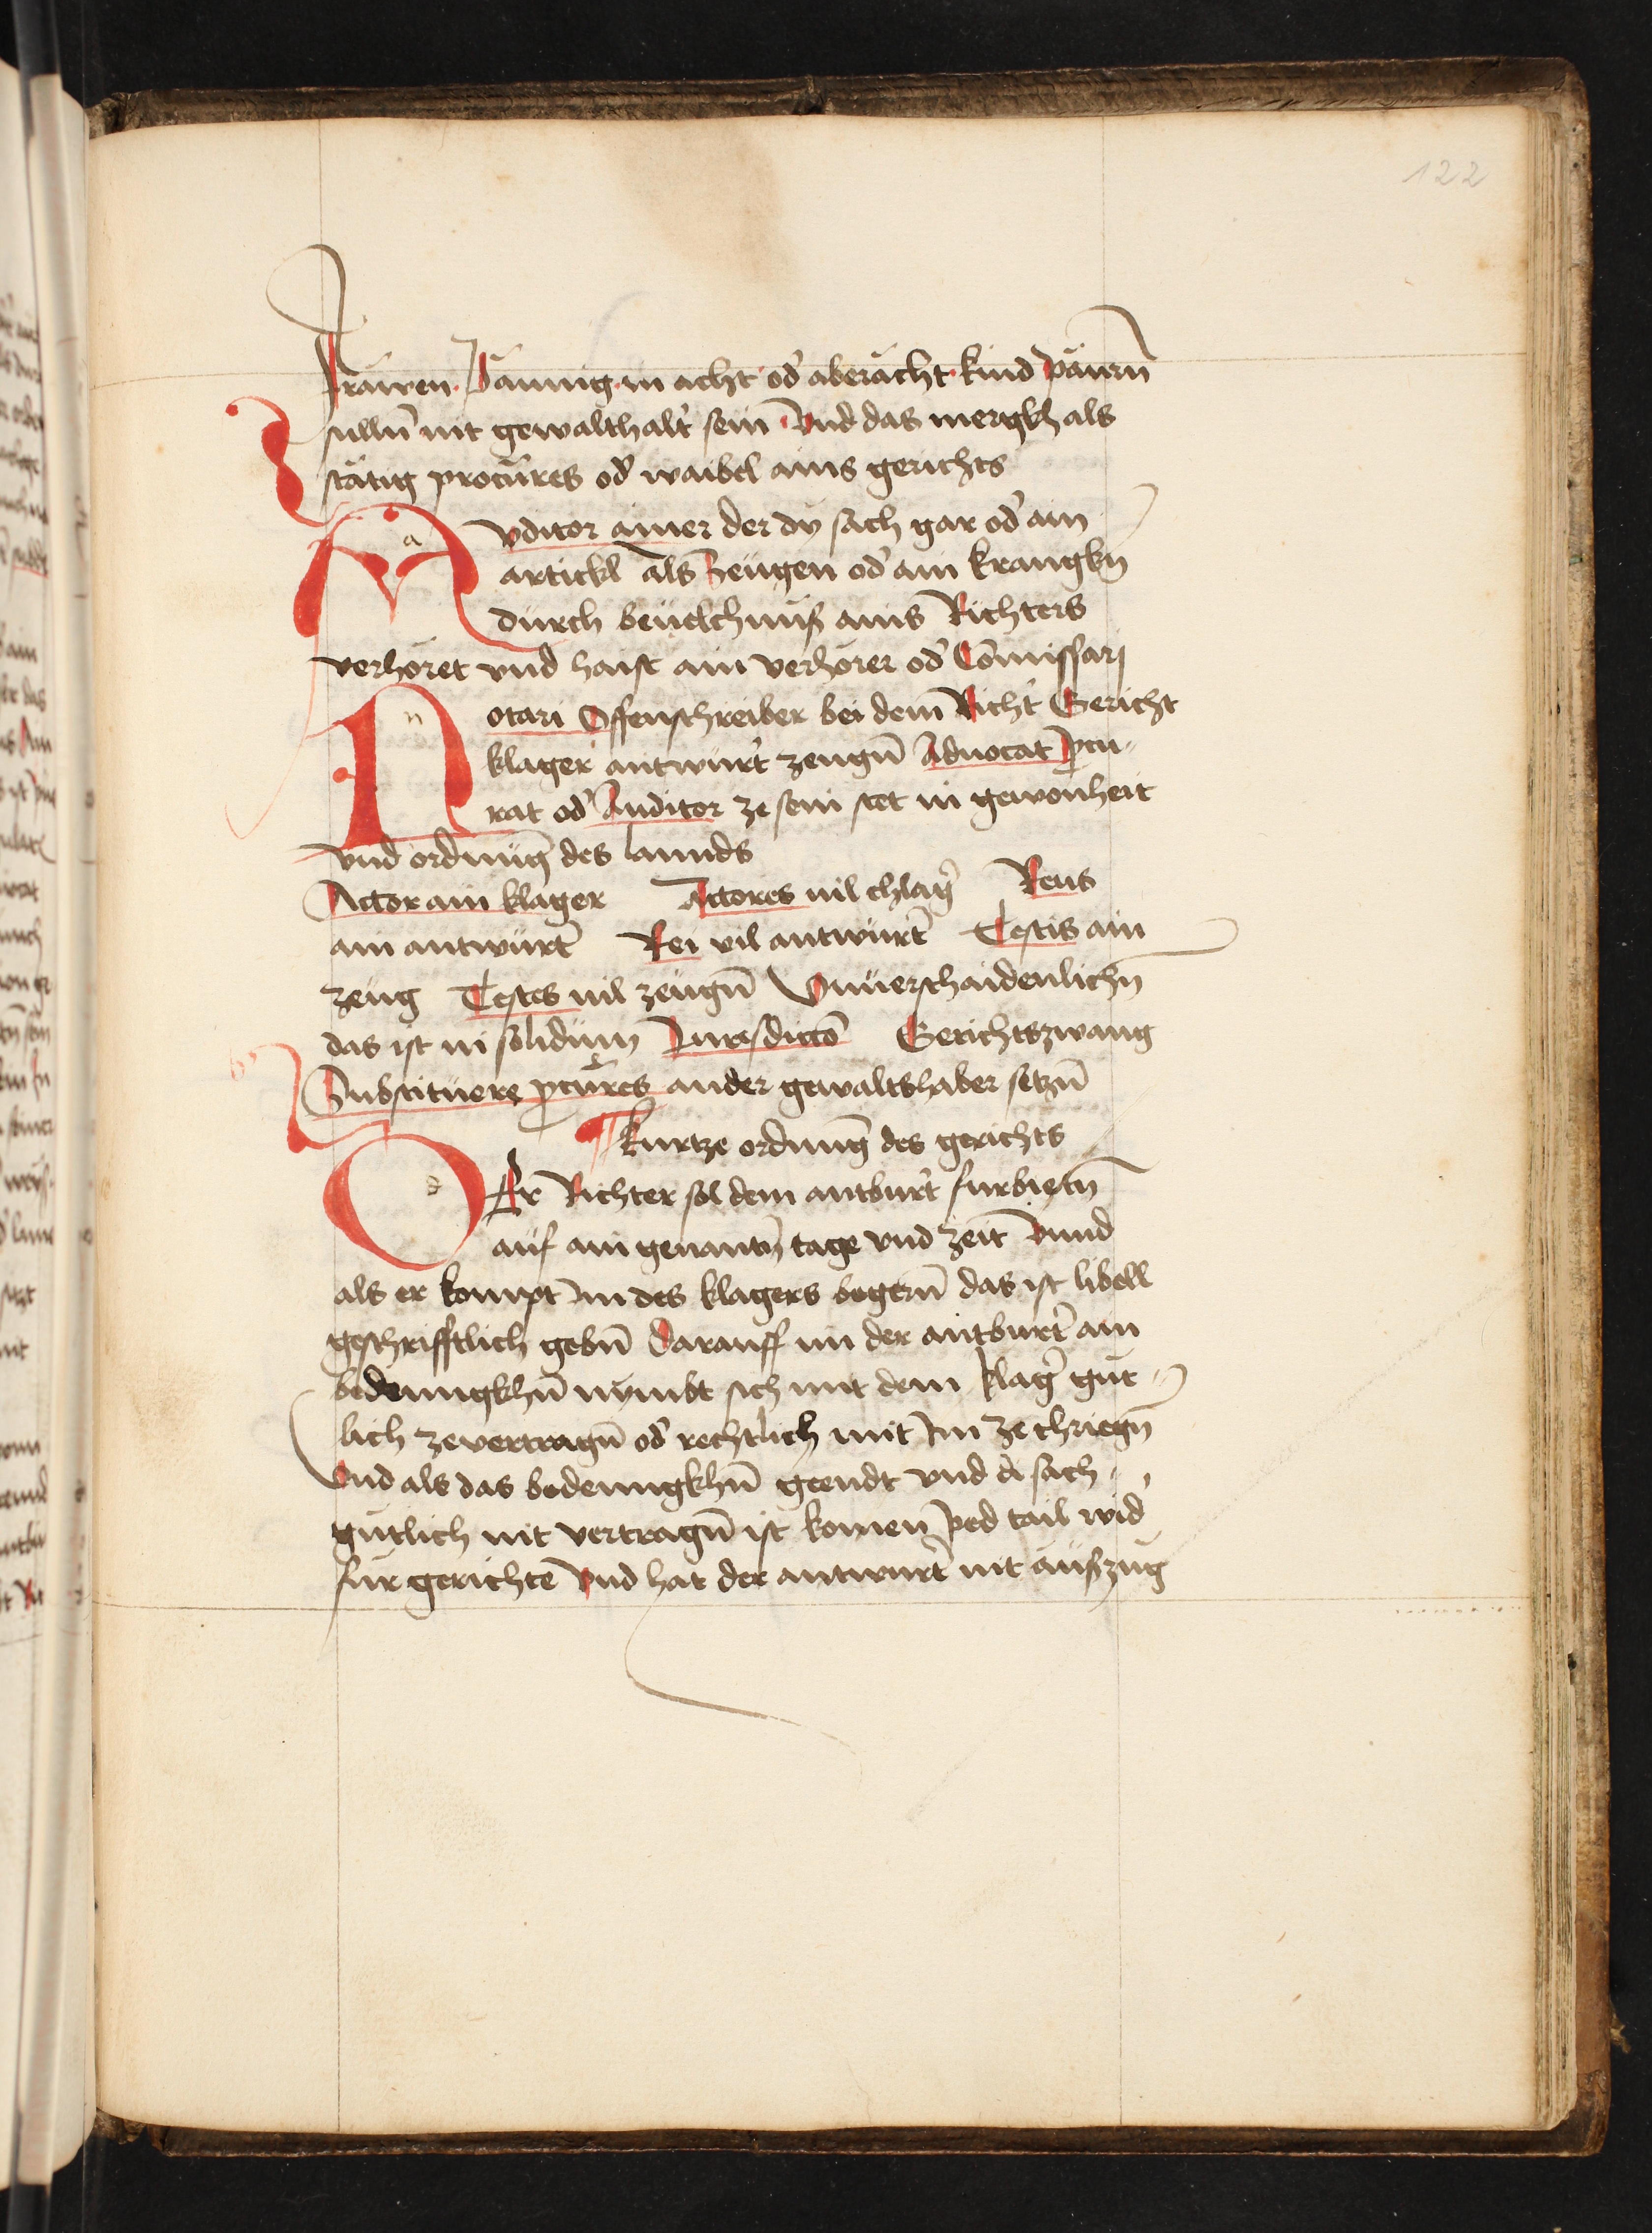 122
Frawen Päunig in acht od' aberacht kind pawrn̄
sulln̄ nit gewalthalt' sein Vnd das mergkh als
stätig procures od' waibel ains gerichts
Auditor ainer der dy sach gar od' ain
artickl als Zeugen od' ain krangkn̄
durch beuelchnuß ains Richters
verhoret vnd haist ain verhörer od' Com̄issarj
Notari Offenschreiber bei dem Richt' Gericht
klager antwurt' zeugn̄ Aduocat pcu-
rat od' Auditor ze sein stet in gewonheit
vnd ordnūg des lannds
Actor ain klager Actores uil chlag' Reus
ain antwürt' Rei vil antwürt' Testis ain
zeug Testes uil zeugn̄ Vnuerschaidenlichn̄
das ist in solidum Jurisdictō Gerichtszwang
Substituere pcures ander gewaltshaber setzn̄
¶ Kurtze ordnūg des gerichts
DEr Richter sol dem antburt' furbietn̄
auf ain genantn̄ tage vnd Zeit Vnnd
als er kompt im des klagers begern̄ das ist libell
geschrifftlich gebn̄ Darauff im der antburt' ain
bedenngkhn̄ nymbt sich mit dem klag' gut-
lich zevertragn̄ od' rechtlich mit im ze chriegn̄
Vnd als das bedenngkhn̄ geendt vnd di sach
gütlich nit vertragn̄ ist komen yed tail wid'
für gerichte Vnd hat der antwurt' nit auszug